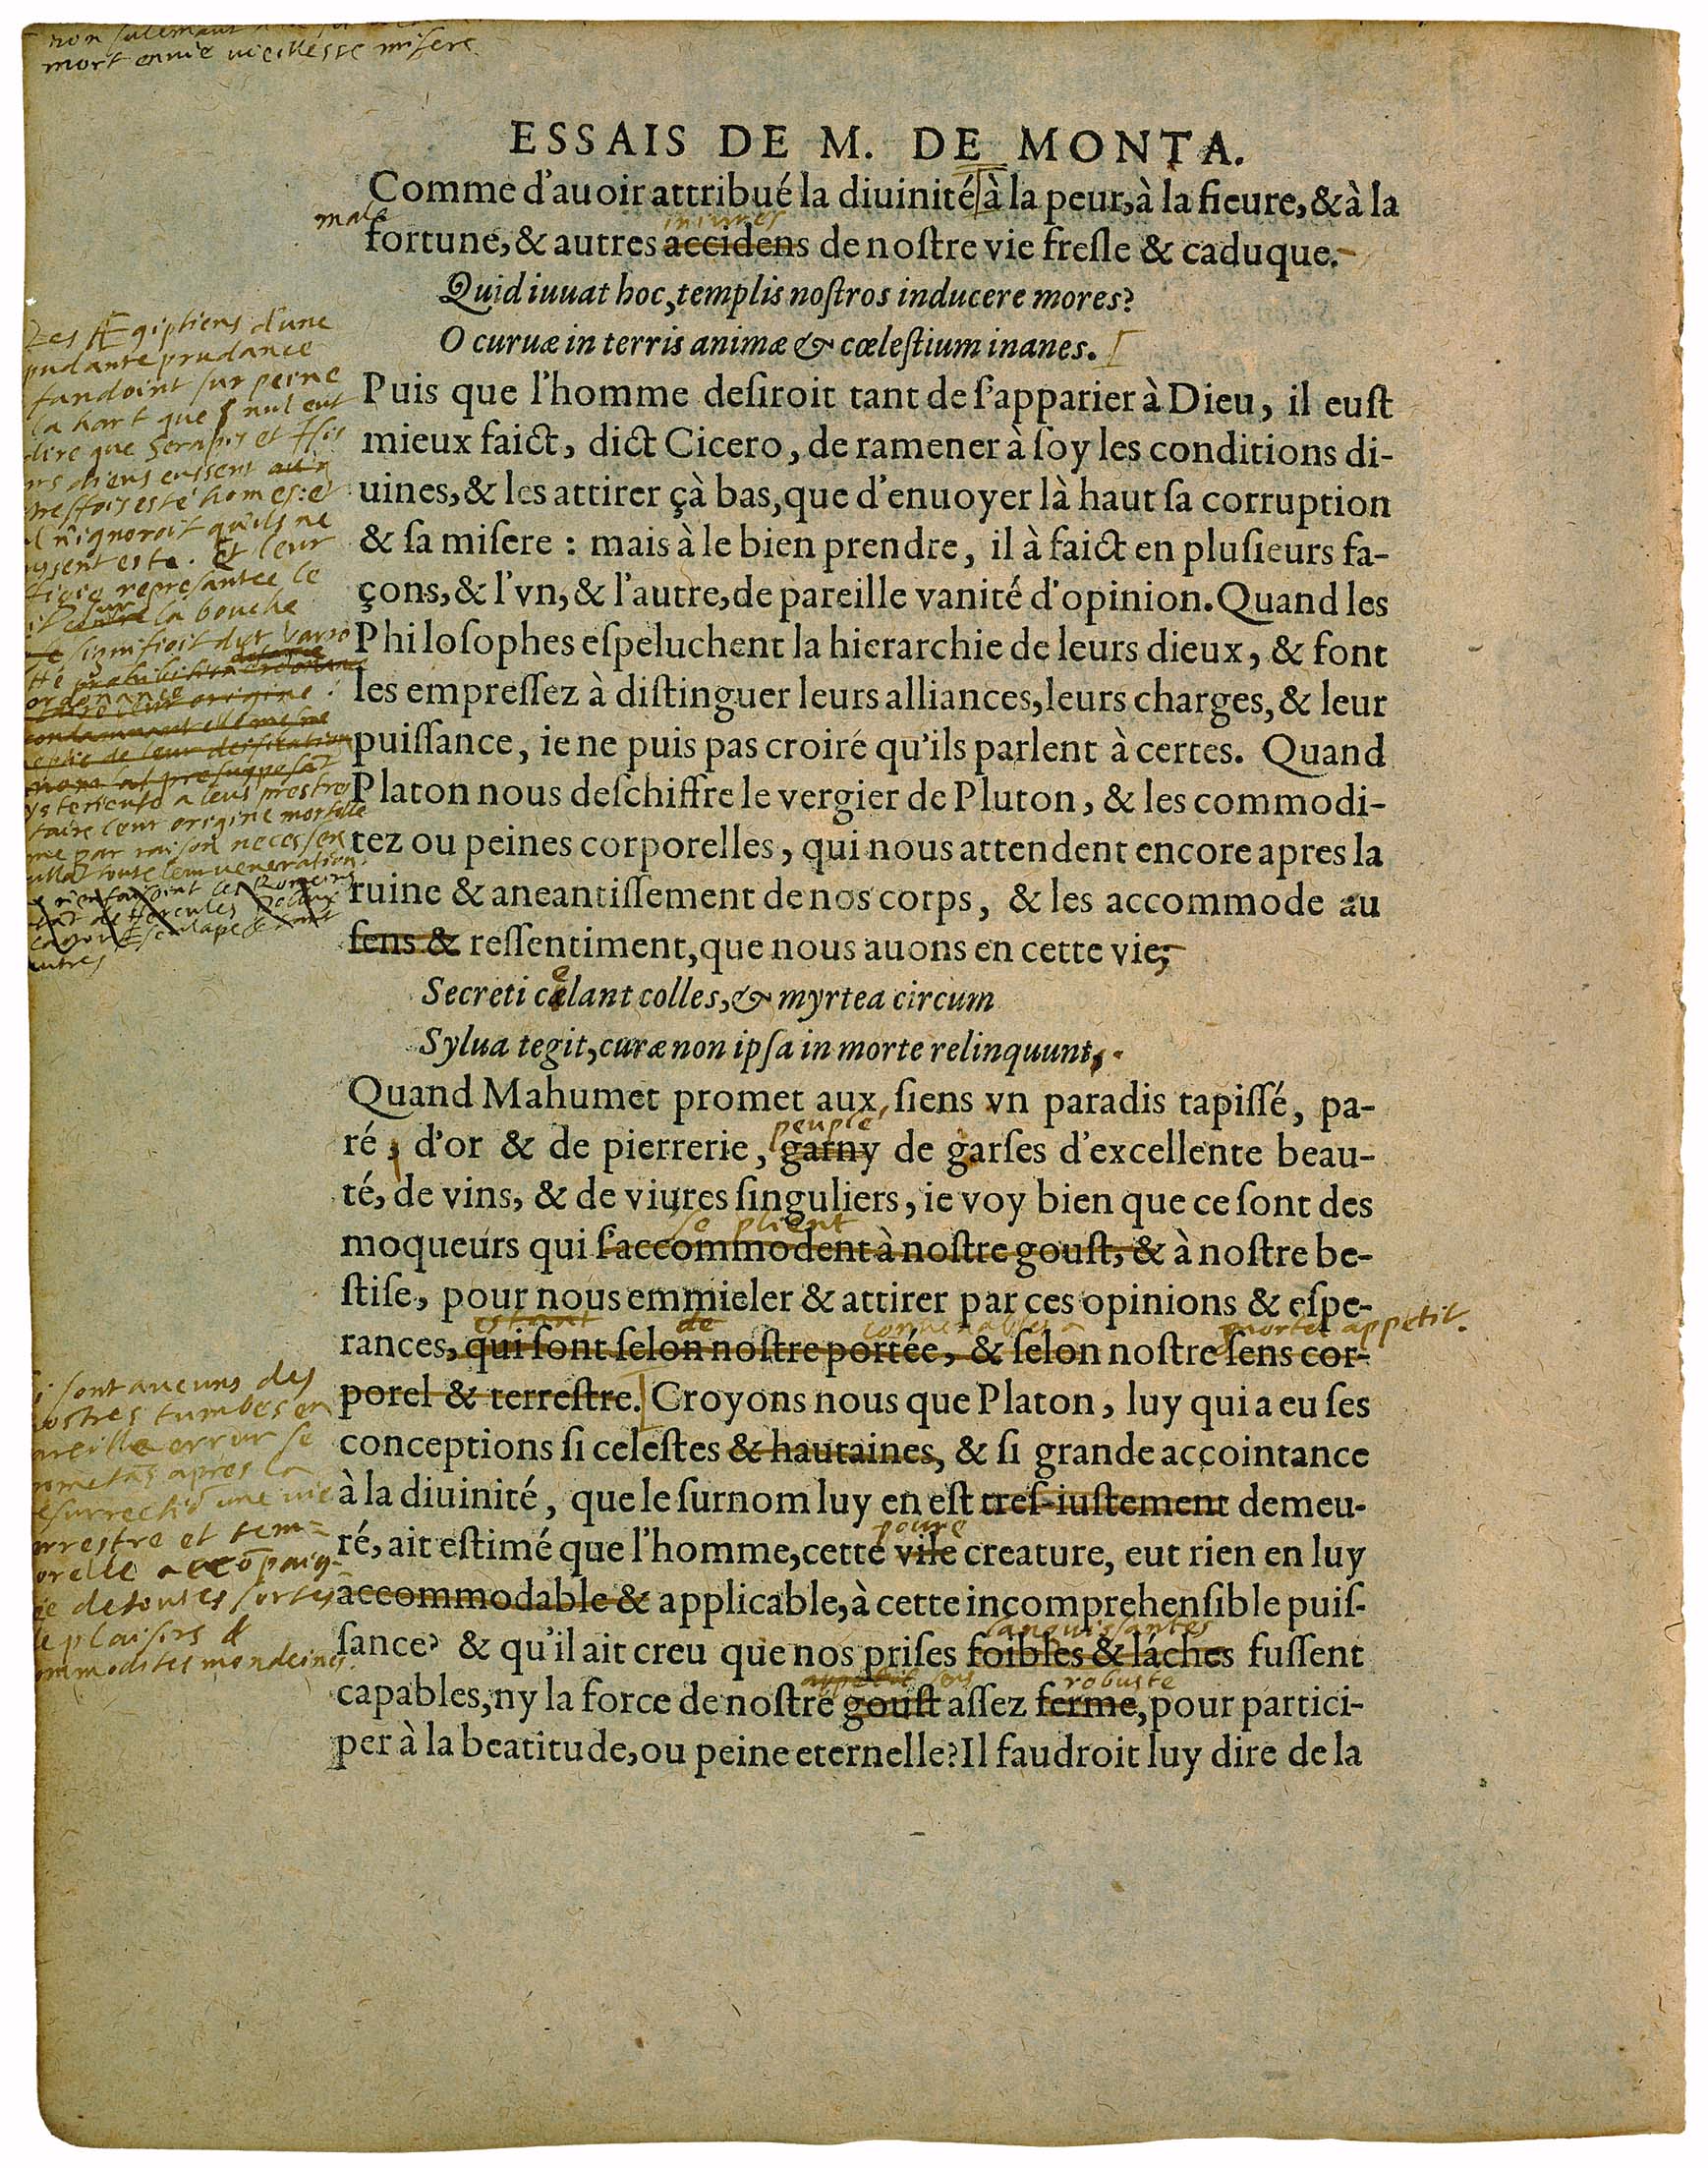 non sulemant
mort envie vieillesse misere
ESSAIS DE M. DE MONTA.
Comme d'auoir attribué la diuinité à la peur, à la fieure, & à la
male
iniures
fortune, & autres accidens de noſtre vie freſle & caduque.
Quid iuuat hoc, templis noſtros inducere mores?
O curuæ in terris animæ & cœleſtium inanes.
Les Ægiptiens d'une
pudante prudance
fandoint sur peine
la hart que nul eut
dire que Serapis et Isis
rs dieus eussent
tresfois esté homes: et
l n'ignoroit qu'ils ne
ussent este. Et leur
ffigie represantee le
it sur la bouche
signifioit dict Varro
ordonance
ysterieuse a leurs prestres
taire leur origine mortelle
me par raison necessere
ullat toute leur veneration
Puis que l'homme deſiroit tant de ſ'apparier à Dieu, il euſt
mieux faict, dict Cicero, de ramener à ſoy les conditions di-
uines, & les attirer çà bas, que d'enuoyer là haut ſa corruption
& ſa miſere : mais à le bien prendre, il à faict en pluſieurs fa-
çons, & l'vn, & l'autre, de pareille vanité d'opinion. Quand les
Philoſophes eſpeluchent la hierarchie de leurs dieux, & font
les empreſſez à diſtinguer leurs alliances, leurs charges, & leur
puiſſance, ie ne puis pas croire qu'ils parlent à certes. Quand
Platon nous deſchiffre le vergier de Pluton, & les commodi-
tez ou peines corporelles, qui nous attendent encore apres la
ruine & aneantiſſement de nos corps, & les accommode au
ſens & reſſentiment, que nous auons en cette vie;
Secreti cælant colles, & myrtea circum
Sylua tegit, curæ non ipſa in morte relinquunt,
Quand Mahumet promet aux ſiens vn paradis tapiſſé, pa-
peuplé
ré, d'or & de pierrerie, garny de garſes d'excellente beau-
té, de vins, & de viures ſinguliers, ie voy bien que ce ſont des
se plient
moqueurs qui ſ'accommodent à noſtre gouſt, & à noſtre be-
ſtiſe, pour nous emmieler & attirer par ces opinions & eſpe-
convenables a
mortel appetit.
rances, qui ſont ſelon noſtre portée, & ſelon noſtre ſens cor-
porel & terreſtre. Croyons nous que Platon, luy qui a eu ſes
conceptions ſi celeſtes & hautaines, & ſi grande accointance
à la diuinité, que le ſurnom luy en eſt treſ-iuſtement demeu-
poure
ré, ait eſtimé que l'homme, cette vile creature, eut rien en luy
accommodable & applicable, à cette incomprehenſible puiſ-
languissantes
ſance? & qu'il ait creu que nos priſes foibles & láches fuſſent
appetit sens
robuste
capables, ny la force de noſtre gouſt aſſez ferme, pour partici-
per à la beatitude, ou peine eternelle? Il faudroit luy dire de la
i sont aucuns des
nostres tumbes en
areille errur se
rometas apres la
esurrectiō une vie
errestre et tem=
orelle accōpaig-
ee de toutes sortes
e plaisirs &
ommodites mondeines